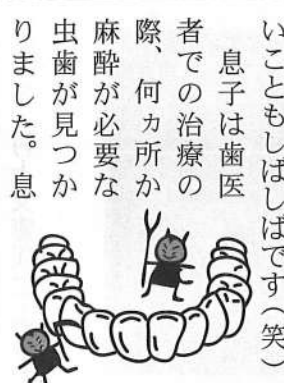 いこともしばしばです（笑）
　息子は歯医
者での治療の
際、何ヵ所か
麻酔が必要な
虫歯が見つか
りました。息